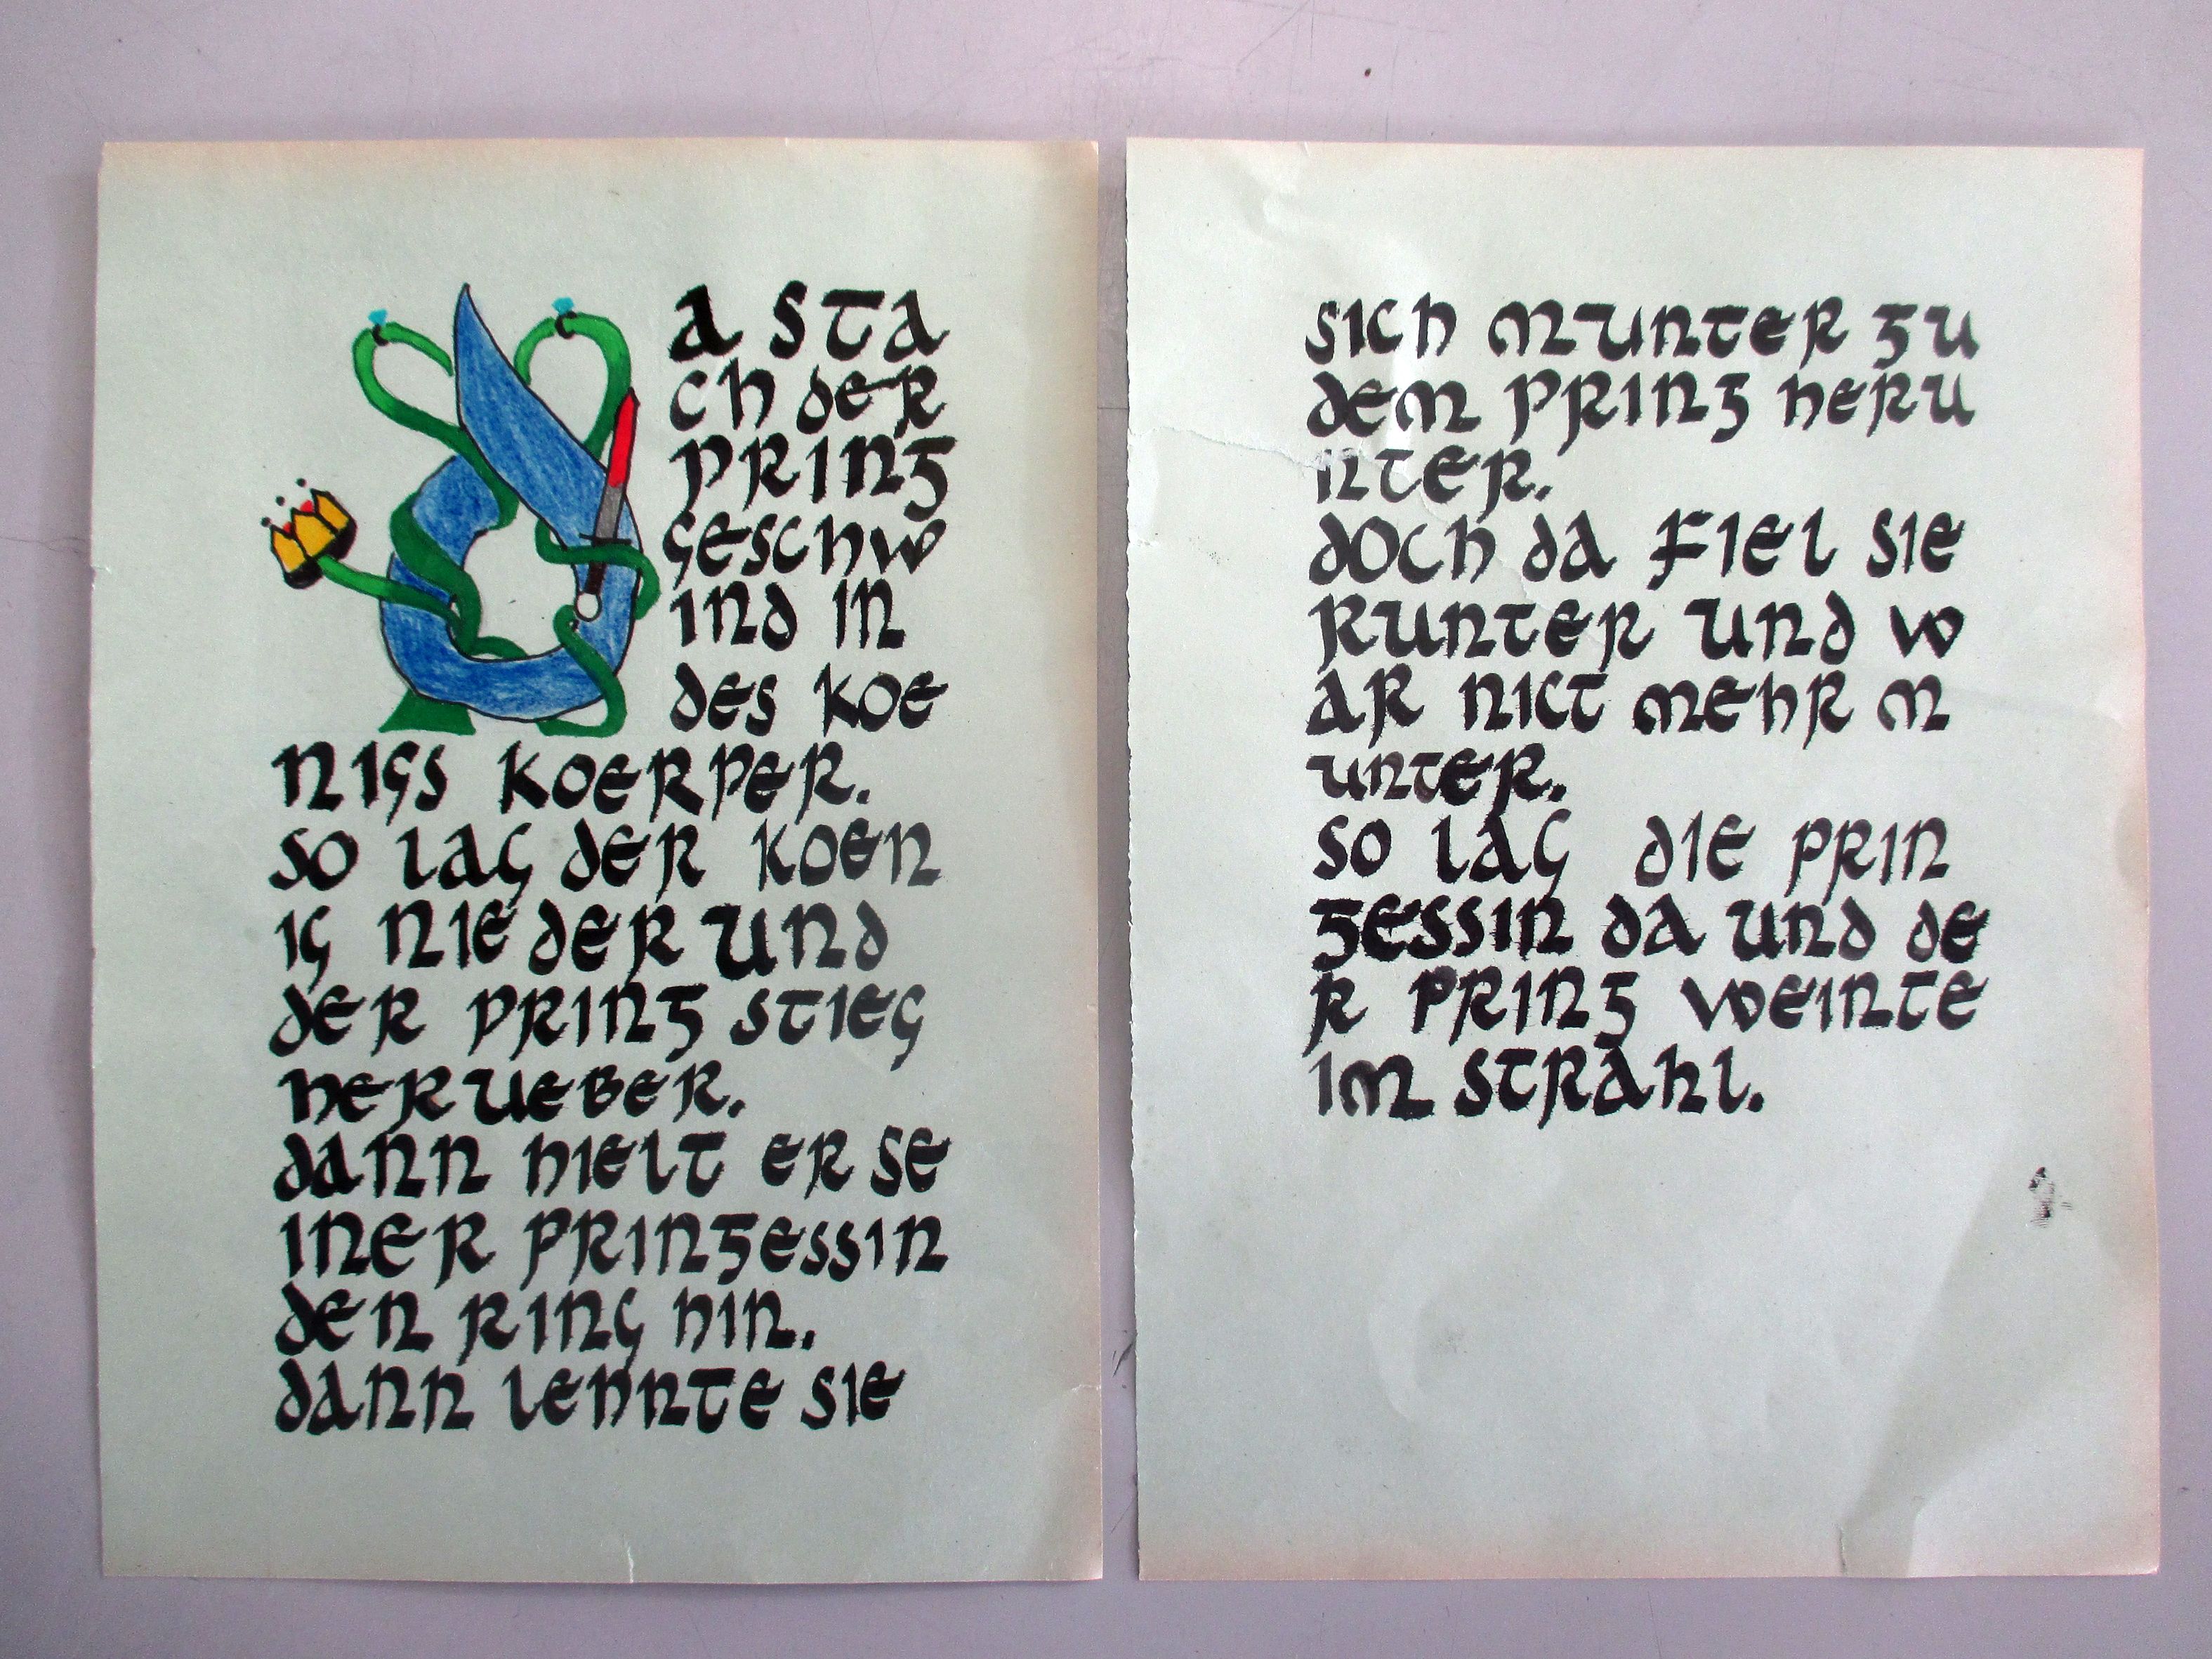 Da sta
ch der
prinz
geschw
ind in
des koe
nigs koerper.
so lag der koen
ig nieder und
der prinz stieg
herueber.
dann hielt er se
iner prinzessin
den ring hin.
dann lehnte sie
sich munter zu
dem prinz heru
nter.
doch da fiel sie
runter und w
ar nict mehr m
unter.
so lag die prin
zessin da und de
r prinz weinte
im strahl.